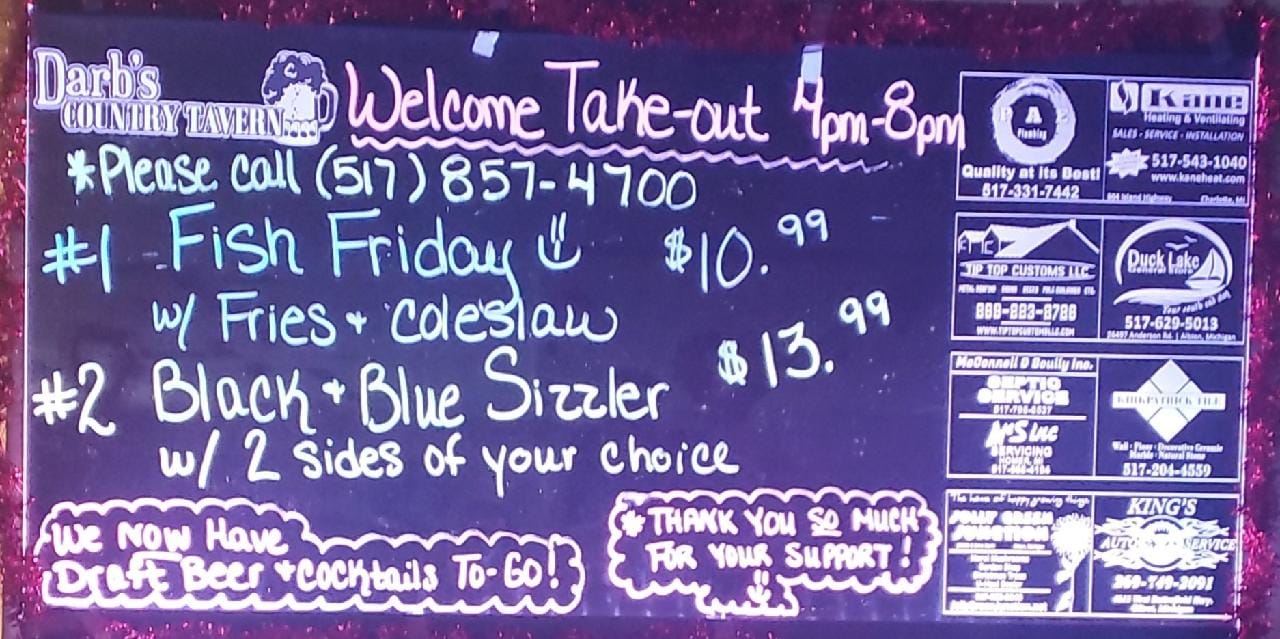 Darb's
COUNTRY TAVERN
Welcome Take-out 4pm-8pm
*Please call (517) 857-4700
#1 Fish Friday $10.99
w/ Fries + Coleslaw
#2 Black + Blue Sizzler $13.99
w/ 2 sides of your choice
We Now Have
Draft Beer + Cocktails To-Go!
* THANK YOU SO MUCH
FOR YOUR SUPPORT!
Quality at its Best!
517-331-7442
Kane
Heating & Ventilating
SALES - SERVICE - INSTALLATION
517-543-1040
www.kaneheat.com
Charlotte, MI
TIP TOP CUSTOMS LLC
Duck Lake
General Store
517-629-5013
McDonnell & Boully Inc.
SEPTIC
SERVICE
SERVICING
KIRKPATRICK TILE
Wall - Floor - Decorative Ceramic
Marble - Natural Stone
517-204-4559
The home of happy growing things
JOLLY GREEN
JUNCTION
KING'S
AUTO SERVICE
269-749-2091